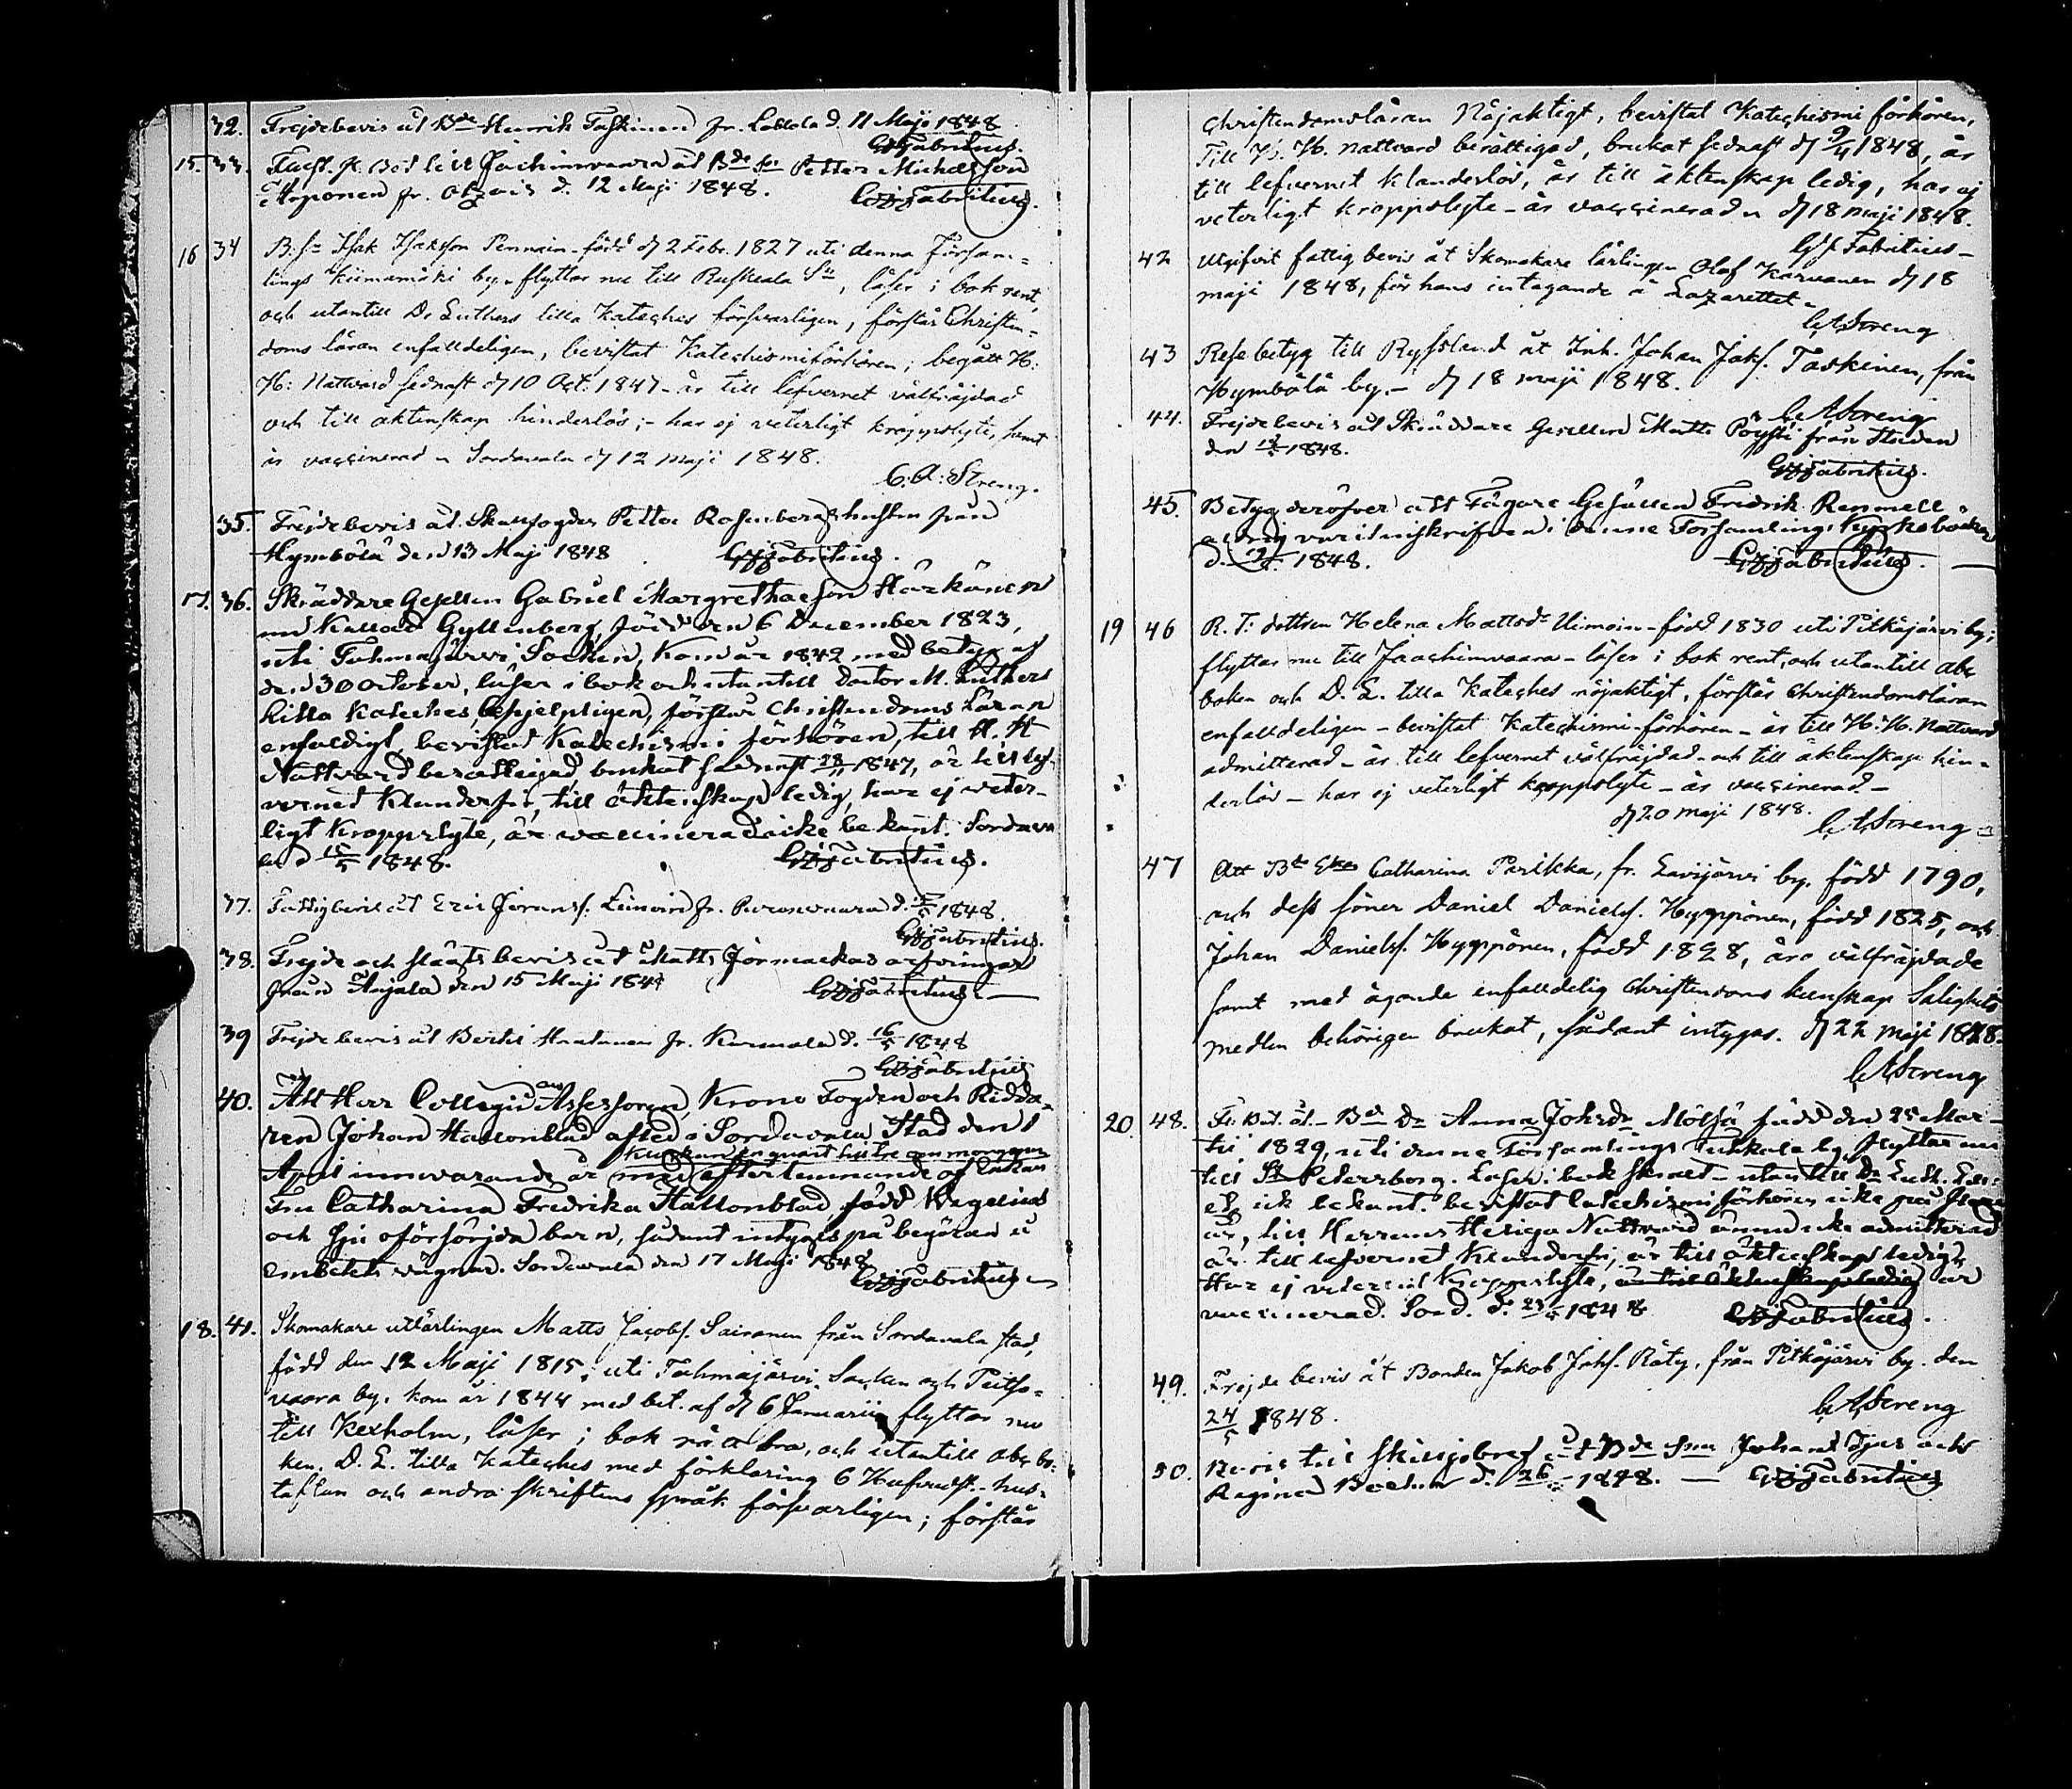 32. Frejdebevis åt Bde Henrik Taskinen fr. Lahola d. 11 Maji 1848
GJFabritius.
15. 33. Flytt. Bet. till Jaachimvaara åt Bde sn Petter Michelsson
Ihponen fr. Otsois d. 12 Maji 1848. GJFabritius.
16 34 B. Sn Isak Isaksson Pennain - född d 2 Febr. 1827 uti denna Försam-
lings Kiimamäki by - flyttar nu till Ruskeala Sn, läser i bok rent,
och utantill D. Luthers lilla Kateches försvarligen, förstår Christen-
doms läran enfalldeligen, bevistat Katechismiförhören; begått H:
H: Nattvard sednast d 10 Oct. 1847 - är till lefvernet välfräjdad
och till äktenskap hinderlös; - har ej veterligt kroppslyte, samt
är vaccinerad - Sordavala d 12 maji 1848.
C. A: Streng.
35. Frejdebevis åt Petter Rosenberg från
Hymbölä den 13 Maji 1848 GJFabritius.
17. 36. Skräddare Gesellen Gabriel Margrethaeson Härkönen
nu Kallad Gyllenberg, född den 6 December 1823,
uti Tohmajärvi Socken, Kom år 1842 med betyg af
den 30 October, läser i bok och utantill Doctor M. Luthers
Lilla Kateches, behjelpligen, förstår Christendoms Läran
enfaldigt, bevistad Katechismi förhören, till H. H
Nattvard berättigad brukat sednast 28/11 1847, är till lef-
vernet Klanderfri, till äktenskap ledig, har ej veter-
ligt Kroppslyte, är vaccinerad icke bekant. Sordava
la d 15/5 1848. GJFabritius.
37. Fattigbevis åt Eric Göranss. Leinoin fr. Puroinvaara d. 1848.
GJFabritius.
38. Frejde och bevis åt Matts Jormackas arfvingar
från Anjala den 15 Maji 1848 GJFabritius.
39 Frejdebevis åt Bertil Hratunen fr. Kurmola d. 16/5 1848
GJFabritius
40. Att Herr Collegii Assessoren, Krono Fogden och Ridda-
ren Johan Hallonblad afled i Sordavala Stad den 1
Klockan en quart till tre om morgonen
April innevarande år med efterlemnande af Enkan
Fru Catharina Fredrika Hallonblad född Wegelius
och sju oförsörjda barn, sådant intygas på begäran å
embetets vägnar. Sordavala den 17 Maji 1848
GJFabritius
18. 41. Skomakare utlärlingen Matts Jacobs. Sairanen från Sordavala stad,
född den 12 Maji 1815, uti Tohmajärvi Socken och Peitso-
vaara by, kom år 1844 med bet. af d 6 Januarii, flyttar nu
till Kexholm, läser i bok rätt bra, och utantill abc bo-
ken, D. L. lilla Kateches med förklaring 6 Hufvudst. - hus-
taflan och andra skriftens språk försvarligen; förstår
Christendomsläran Nöjaktigt, bevistat Katechismi förhören,
Till H. H. nattvard berättigad, brukat sednast d 9/4 1848, är
till lefvernet Klanderlös, är till äktenskap ledig, har ej
veterligt kroppslyte - är vaccinerad - d 18 maji 1848.
GJ. Fabritius -
42 Utgifvit fattig bevis åt Skomakare lärlingen Olof Karvanen d 18
maji 1848, för hans intagande å Lazarettet -
C A Streng
43 Rese betyg till Ryssland åt Inh. Johan Johs. Taskinen, från
Hymbölä by. - d 18 maji 1848.
C A Streng
44. Frejdebevis åt Skräddare Gesellen Matts Pöysti från Staden
den 19/5 1848.
GJFabritius.
45. Betyg deröfver att Fägare Gesällen Fredrik Renmell
aldrig varit inskrifven i denne Församlings Kyrkoböcker
d. 19/5 1848. GJFabritius.
19 46 R. T. dottren Helena Mattsdr Uimoin - född 1830 uti Pitkäjärvi by;
flyttar nu till Jaachimvaara - läser i bok rent, och utantill abc
boken och D. L. lilla Kateches nöjaktigt, förstår Christendomsläran
enfalldeligen - bevistat Katechismi-förhören - är till H. H. Nattvard
admitterad - är till lefvernet välfräjdad - och till äktenskap hin-
derlös - har ej veterligt kroppslyte - är vaccinerad -
d 20 maji 1848. C A Streng
47 Att Bde Enkan Catharina Parikka, fr. Lavijärvi by, född 1790,
och dess söner Daniel Daniels. Hyppönen, född 1825, och
Johan Daniels. Hyppönen, född 1828, äro välfräjdade
samt med ägande enfalldelig Christendoms kunskap Salighets
medlen behörigen brukat, sådant intygas. d 22 maji 1848.
C A Streng
20. 48. Fl. Bet. åt - Bde Dr Anna Johsdr Mölsä född den 25 Mar-
tii 1829, uti denne Församlings Tuhkala by, flyttar nu
till St Petersborg. Läser i bok - utantill Dr Luth. Lilla
ick bekant. bevistat Catechismiförhören icke på flera
år, till Herrans Heliga Nattvard ännu icke admitterad
är till lefvernet Klanderfri, är till äktenskap ledig,
Har ej veterligt Kroppslyte, är till äktenskap ledig är
vaccinerad. Sord. d. 23/5 1848 GJFabritius.
49. Frejdebevis åt Bonden Jakob Johs. Räty, från Pitkäjärvi by. den
24/5 1848. C A Streng
50. Bevis till Skiljobref åt Bde Son Johan Ijäs och
Regina d. 26/5 1848. - GJFabritius